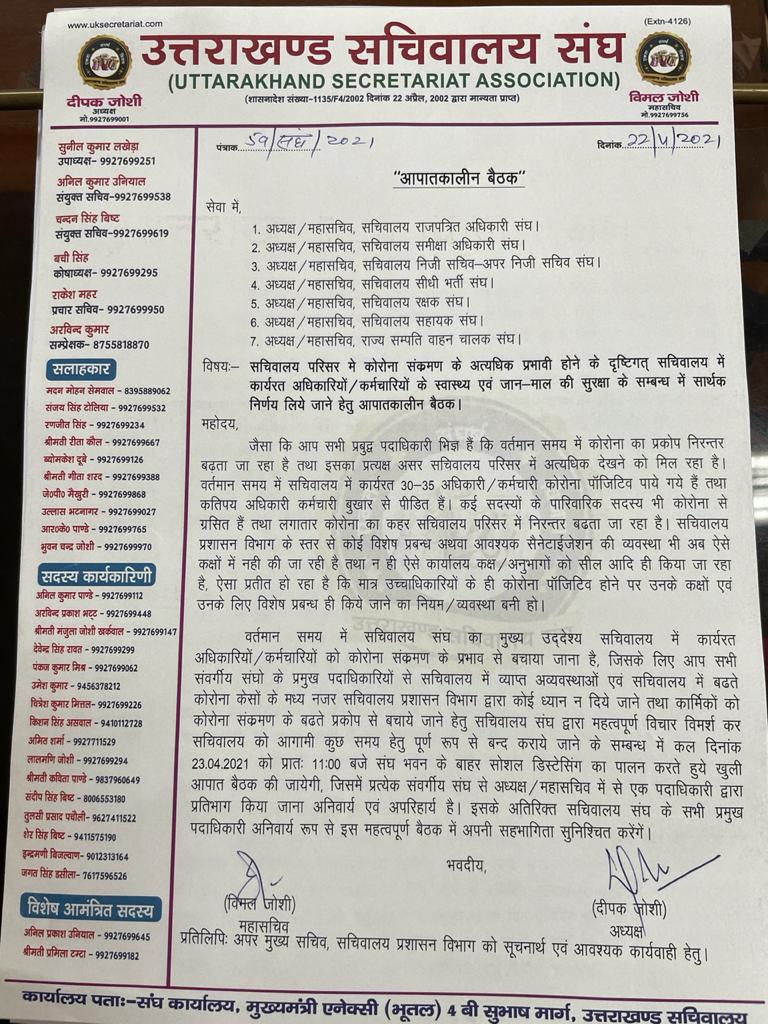 www.uksecretariat.com
(Extn-4126)
उत्तराखण्ड सचिवालय संघ
(UTTARAKHAND SECRETARIAT ASSOCIATION)
(शासनादेश संख्या-1135/F4/2002 दिनांक 22 अप्रैल, 2002 द्वारा मान्यता प्राप्त)
दीपक जोशी
अध्यक्ष
मो.9927699001
विमल जोशी
महासचिव
मो.9927699756
सुनील कुमार लखेड़ा
उपाध्यक्ष- 9927699251
अनिल कुमार उनियाल
संयुक्त सचिव-9927699538
चन्दन सिंह बिष्ट
संयुक्त सचिव-9927699619
बची सिंह
कोषाध्यक्ष- 9927699295
राकेश महर
प्रचार सचिव- 9927699950
अरविन्द कुमार
सम्प्रेक्षक- 8755818870
सलाहकार
मदन मोहन सेमवाल - 8395889062
संजय सिंह टोलिया - 9927699532
रणजीत सिंह - 9927699234
श्रीमती रीता कौल - 9927699667
ब्योमकेश दूबे - 9927699126
श्रीमती गीता शरद - 9927699388
जे0पी0 मैखुरी - 9927699868
उल्लास भटनागर - 9927699027
आर0के0 पाण्डे - 9927699765
भुवन चन्द्र जोशी - 9927699970
सदस्य कार्यकारिणी
अनिल कुमार पाण्डे - 9927699112
अरविन्द प्रकाश भट्ट - 9927699448
श्रीमती मंजुला जोशी खर्कवाल - 9927699147
देवेन्द्र सिंह रावत - 9927699299
पंकज कुमार मिश्र - 9927699062
उमेश कुमार - 9456378212
चित्रेश कुमार मित्तल- 9927699226
किशन सिंह असवाल - 9410112728
अमित शर्मा - 9927711529
लालमणि जोशी - 9927699294
श्रीमती कविता पाण्डे - 9837960649
संदीप सिंह बिष्ट - 8006553180
तुलसी प्रसाद पचौली- 9627411522
शेर सिंह बिष्ट - 9411575190
इन्द्रमणी बिजल्वाण- 9012313164
जगत सिंह डसीला- 7617596526
विशेष आमंत्रित सदस्य
अनिल प्रकाश उनियाल - 9927699645
श्रीमती प्रमिला टम्टा - 9927699182
पंत्राक 59/संघ/2021
दिनांक 22/4/2021
"आपातकालीन बैठक"
सेवा में,
1. अध्यक्ष/महासचिव, सचिवालय राजपत्रित अधिकारी संघ।
2. अध्यक्ष/महासचिव, सचिवालय समीक्षा अधिकारी संघ।
3. अध्यक्ष/महासचिव, सचिवालय निजी सचिव-अपर निजी सचिव संघ।
4. अध्यक्ष/महासचिव, सचिवालय सीधी भर्ती संघ।
5. अध्यक्ष/महासचिव, सचिवालय रक्षक संघ।
6. अध्यक्ष/महासचिव, सचिवालय सहायक संघ।
7. अध्यक्ष/महासचिव, राज्य सम्पति वाहन चालक संघ।
विषयः- सचिवालय परिसर मे कोरोना संक्रमण के अत्यधिक प्रभावी होने के दृष्टिगत् सचिवालय में
कार्यरत अधिकारियों/कर्मचारियों के स्वास्थ्य एवं जान-माल की सुरक्षा के सम्बन्ध में सार्थक
निर्णय लिये जाने हेतु आपातकालीन बैठक।
महोदय,
जैसा कि आप सभी प्रबुद्व पदाधिकारी भिज्ञ हैं कि वर्तमान समय में कोरोना का प्रकोप निरन्तर
बढ़ता जा रहा है तथा इसका प्रत्यक्ष असर सचिवालय परिसर में अत्यधिक देखने को मिल रहा है।
वर्तमान समय में सचिवालय में कार्यरत 30-35 अधिकारी/कर्मचारी कोरोना पॉजिटिव पाये गये हैं तथा
कतिपय अधिकारी कर्मचारी बुखार से पीडित हैं। कई सदस्यों के पारिवारिक सदस्य भी कोरोना से
ग्रसित हैं तथा लगातार कोरोना का कहर सचिवालय परिसर में निरन्तर बढता जा रहा है। सचिवालय
प्रशासन विभाग के स्तर से कोई विशेष प्रबन्ध अथवा आवश्यक सैनेटाईजेशन की व्यवस्था भी अब ऐसे
कक्षों में नही की जा रही है तथा न ही ऐसे कार्यालय कक्ष/अनुभागों को सील आदि ही किया जा रहा
है, ऐसा प्रतीत हो रहा है कि मात्र उच्चाधिकारियों के ही कोरोना पॉजिटिव होने पर उनके कक्षों एवं
उनके लिए विशेष प्रबन्ध ही किये जाने का नियम/व्यवस्था बनी हो।
वर्तमान समय में सचिवालय संघ का मुख्य उद्देश्य सचिवालय में कार्यरत
अधिकारियों/कर्मचारियों को कोरोना संक्रमण के प्रभाव से बचाया जाना है, जिसके लिए आप सभी
संवर्गीय संघो के प्रमुख पदाधिकारियों से सचिवालय में व्याप्त अव्यवस्थाओं एवं सचिवालय में बढते
कोरोना केसों के मध्य नजर सचिवालय प्रशासन विभाग द्वारा कोई ध्यान न दिये जाने तथा कार्मिकों को
कोरोना संक्रमण के बढते प्रकोप से बचाये जाने हेतु सचिवालय संघ द्वारा महत्वपूर्ण विचार विमर्श कर
सचिवालय को आगामी कुछ समय हेतु पूर्ण रूप से बन्द कराये जाने के सम्बन्ध में कल दिनांक
23.04.2021 को प्रातः 11:00 बजे संघ भवन के बाहर सोशल डिस्टेसिंग का पालन करते हुये खुली
आपात बैठक की जायेगी, जिसमें प्रत्येक संवर्गीय संघ से अध्यक्ष/महासचिव में से एक पदाधिकारी द्वारा
प्रतिभाग किया जाना अनिवार्य एवं अपरिहार्य है। इसके अतिरिक्त सचिवालय संघ के सभी प्रमुख
पदाधिकारी अनिवार्य रूप से इस महत्वपूर्ण बैठक में अपनी सहभागिता सुनिश्चित करेंगें।
भवदीय,
(विमल जोशी)
महासचिव
(दीपक जोशी)
अध्यक्ष
प्रतिलिपिः अपर मुख्य सचिव, सचिवालय प्रशासन विभाग को सूचनार्थ एवं आवश्यक कार्यवाही हेतु।
कार्यालय पताः-संघ कार्यालय, मुख्यमंत्री एनेक्सी (भूतल) 4 बी सुभाष मार्ग, उत्तराखण्ड सचिवालय